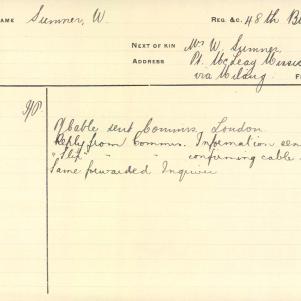 NAME Sumner, W. REG. &C. 48th B
NEXT OF KIN Mrs W. Sumner
ADDRESS Pt. McLeay Missi
via Milang F
Of Cable sent Commrs. London
Reply from Commrs. Information sen
confirming cable
Same forwarded Inquirer